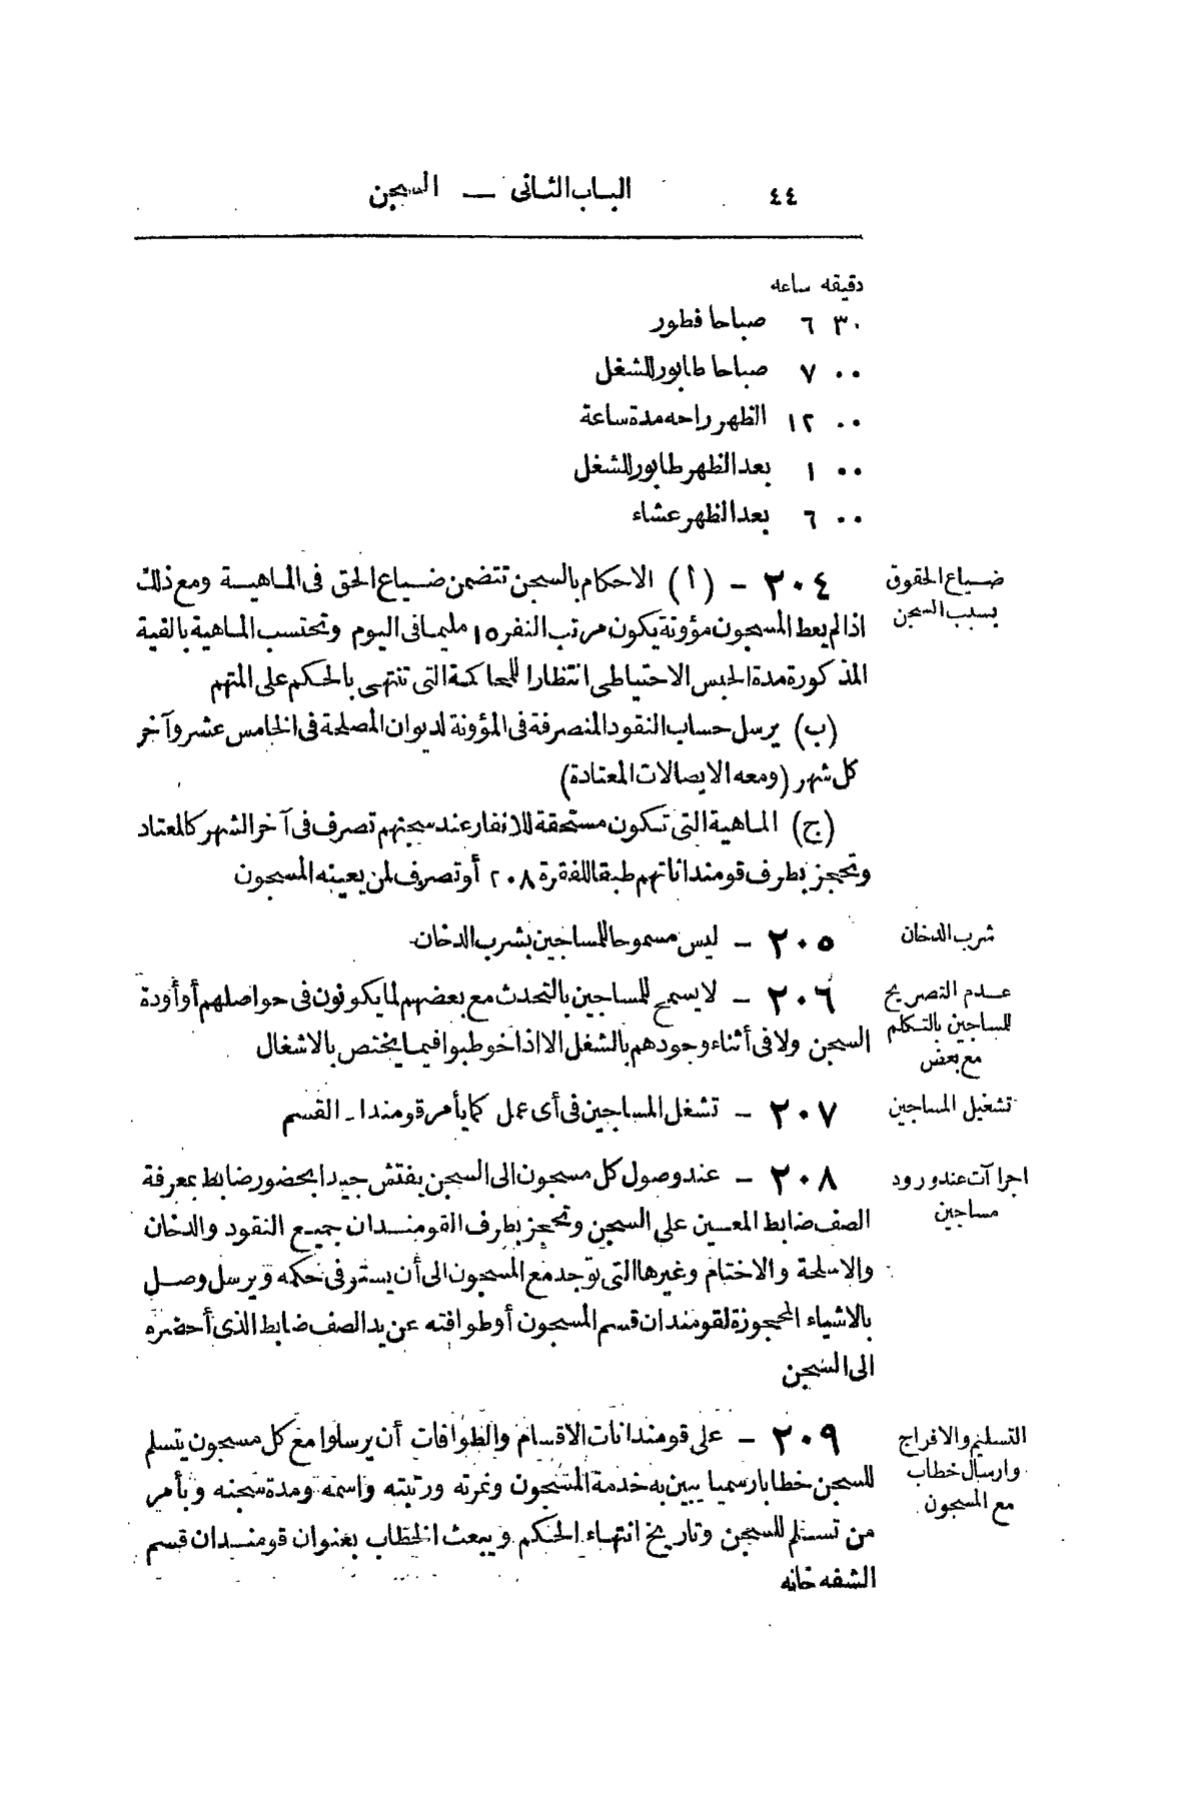 ٤٤
الباب الثانى — السجن
دقيقه ساعه
٣٠ ٦ صباحا فطور
٠٠ ٧ صباحا طابور للشغل
٠٠ ١٢ الظهر راحه مدة ساعة
٠٠ ١ بعد الظهر طابور للشغل
٠٠ ٦ بعد الظهر عشاء
ضياع الحقوق
بسبب السجن
٢٠٤ - (أ) الاحكام بالسجن تتضمن ضياع الحق فى الماهية ومع ذلك
اذا لم يعط المسجون مؤونة يكون مرتب النفر ١٥ مليما فى اليوم وتحتسب الماهية بالفية
المذكورة مدة الحبس الاحتياطى انتظارا للمحاكمة التى تنتهى بالحكم على المتهم
(ب) يرسل حساب النقود المنصرفة فى المؤونة لديوان المصلحة فى الخامس عشر وآخر
كل شهر (ومعه الايصالات المعتادة)
(ج) الماهية التى تكون مستحقة للانفار عند سجنهم تصرف فى آخر الشهر كالمعتاد
وتحجز بطرف قومنداناتهم طبقا للفقرة ٢٠٨ أو تصرف لمن يعينه المسجون
شرب الدخان
٢٠٥ - ليس مسموحا للمساجين بشرب الدخان
عدم التصريح
للمساجين بالتكلم
مع بعض
٢٠٦ - لا يسمح للمساجين بالتحدث مع بعضهم لما يكونون فى حواصلهم أو أودة
السجن ولا فى أثناء وجودهم بالشغل الا اذا خوطبوا فيما يختص بالاشغال
تشغيل المساجين
٢٠٧ - تشغل المساجين فى أى عمل كما يأمر قومندان القسم
اجراآت عند ورود
مساجين
٢٠٨ - عند وصول كل مسجون الى السجن يفتش جيدا بحضور ضابط بمعرفة
الصف ضابط المعين على السجن وتحجز بطرف القومندان جميع النقود والدخان
والاسلحة والاختام وغيرها التى توجد مع المسجون الى أن يستوفى حكمه ويرسل وصل
بالاشياء المحجوزة لقومندان قسم المسجون أو طوافته عن يد الصف ضابط الذى أحضره
الى السجن
التسليم والافراج
وارسال خطاب
مع المسجون
٢٠٩ - على قومندانات الاقسام والطوافات أن يرسلوا مع كل مسجون يتسلم
للسجن خطابا رسميا يبين به خدمة المسجون ونمرته ورتبته واسمه ومدة سجنه وبأمر
من تسلم للسجن وتاريخ انتهاء الحكم ويبعث الخطاب بعنوان قومندان قسم
الشفه خانه